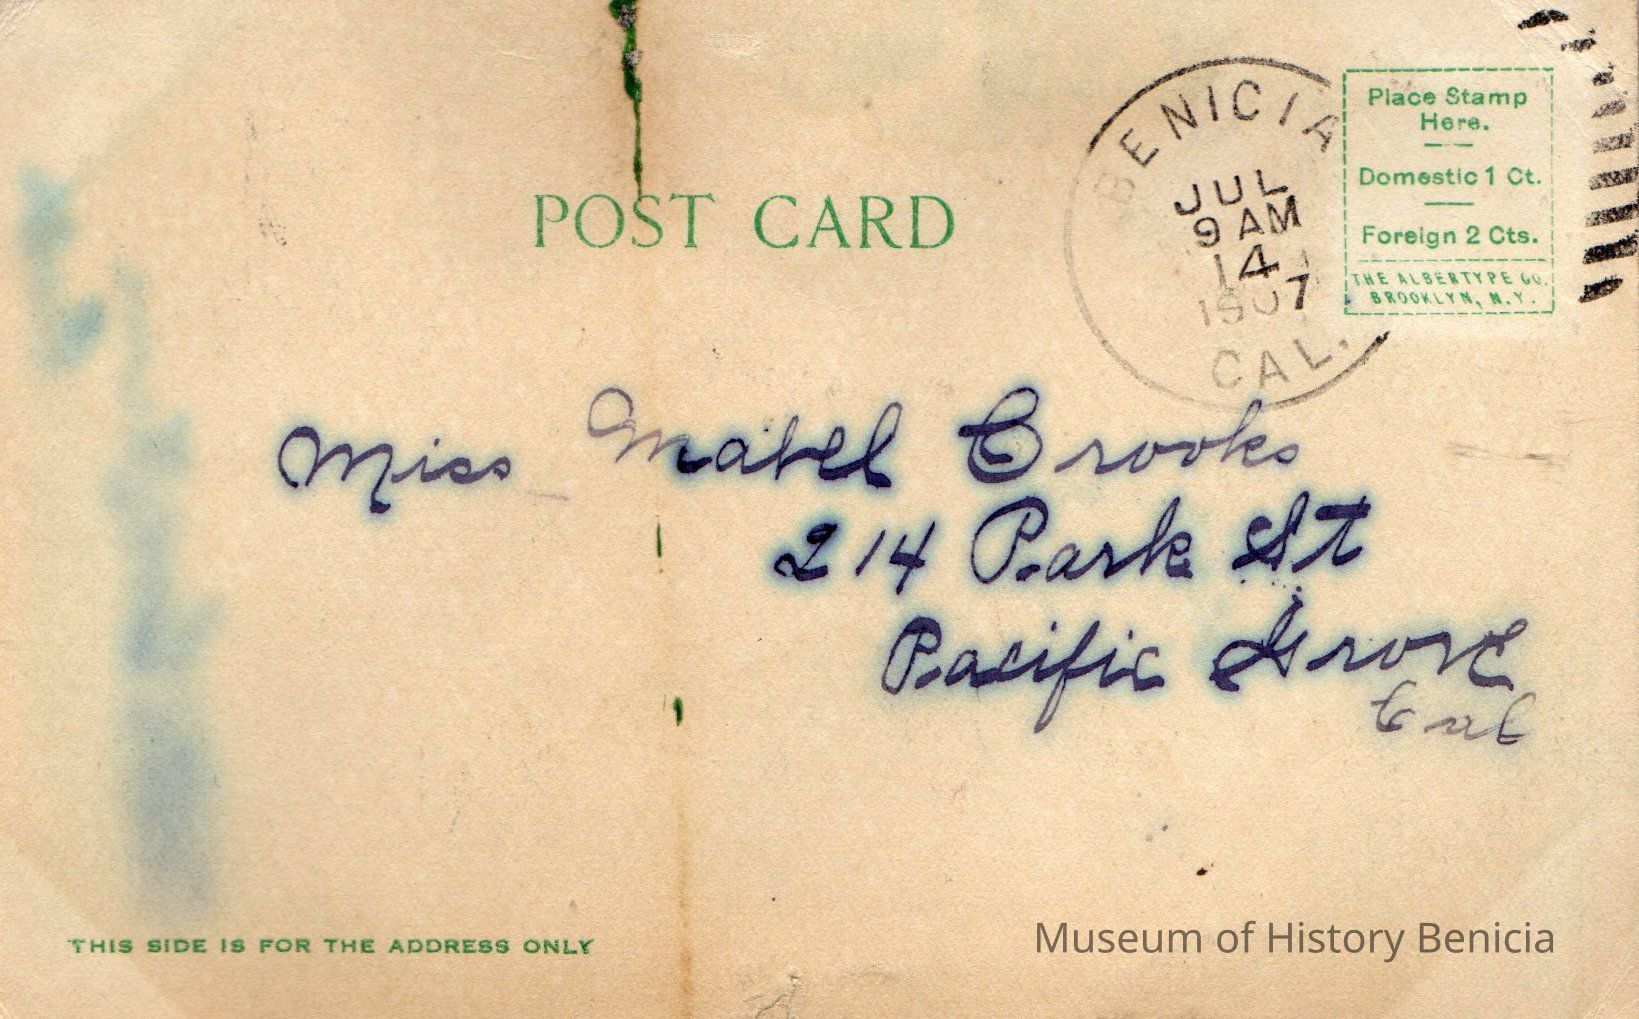 BENICIA
JUL
9 AM
14
1907
CAL.
Place Stamp
Here.
Domestic 1 Ct.
Foreign 2 Cts.
THE ALBERTYPE CO.
BROOKLYN, N.Y.
POST CARD
Miss Mabel Crooks
214 Park St
Pacific Grove
Cal
THIS SIDE IS FOR THE ADDRESS ONLY
Museum of History Benicia